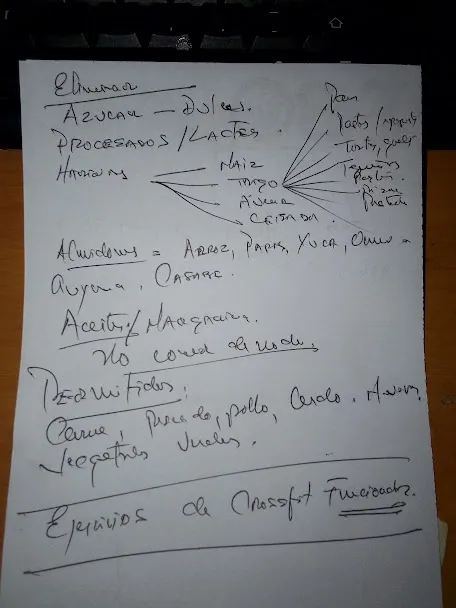 Eliminar
AZUCAR — DULCES.
PROCESADOS / LACTEOS.
HARINAS
MAIZ
TRIGO
AVENA
CEBADA.
Pan
Pasta
Tortas,
Pastel
Pizza
Almidones = ARROZ, PAPAS, YUCA,
Auyama, CASABE.
Aceites / MARGARINA.
No comer de noche.
PERMITIDOS:
Carne, Pescado, pollo, Cerdo. Huevos.
Vegetales Verdes.
Ejercicios de Crossfit Funcional.